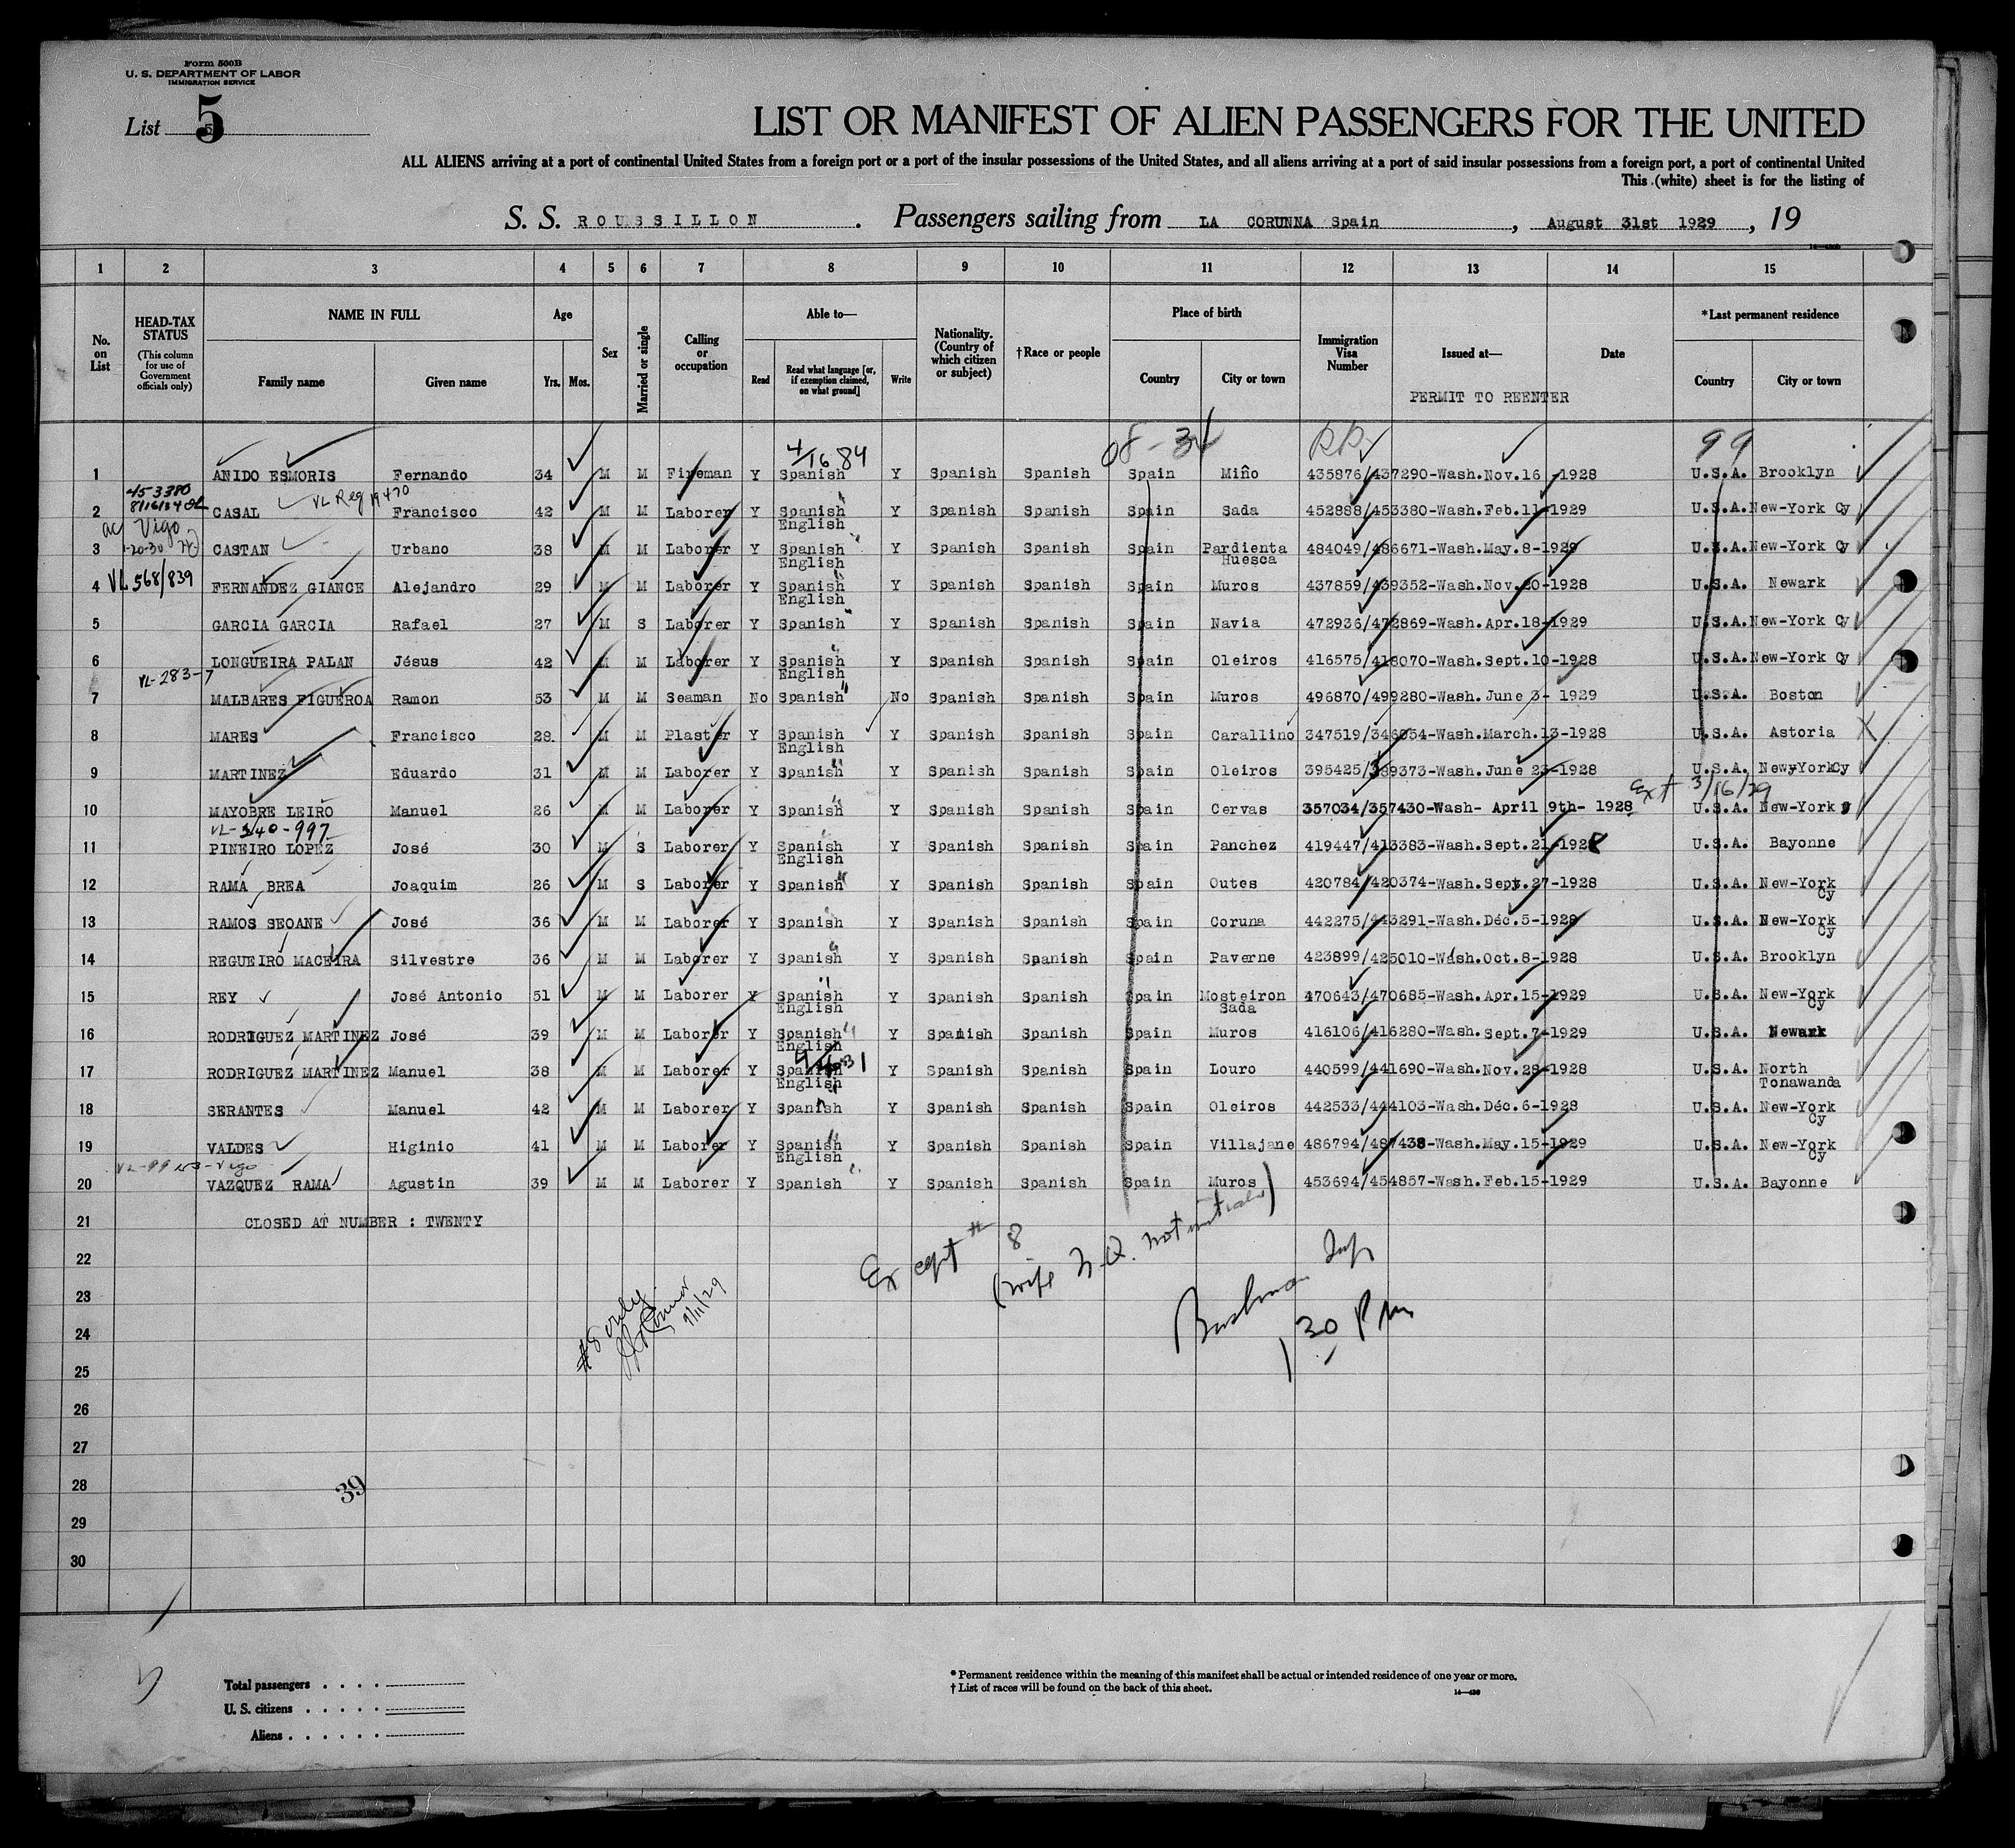 Form 500B
U. S. DEPARTMENT OF LABOR
IMMIGRATION SERVICE
List 5
LIST OR MANIFEST OF ALIEN PASSENGERS FOR THE UNITED
ALL ALIENS arriving at a port of continental United States from a foreign port or a port of the insular possessions of the United States, and all aliens arriving at a port of said insular possessions from a foreign port, a port of continental United
This (white) sheet is for the listing of
S. S. ROUSSILLON. Passengers sailing from LA CORUNNA Spain, August 31st 1929, 19
1 2 3 4 5 6 7 8 9 10 11 12 13 14 15
No. on List
HEAD-TAX STATUS
(This column for use of Government officials only)
NAME IN FULL
Family name
Given name
Age
Yrs. Mos.
Sex
Married or single
Calling or occupation
Able to—
Read
Read what language [or, if exemption claimed, on what ground]
Write
Nationality. (Country of which citizen or subject)
†Race or people
Place of birth
Country
City or town
Immigration Visa Number
Issued at—
PERMIT TO REENTER
Date
*Last permanent residence
Country
City or town
4/16 84
08-34
RP
99
1 ANIDO ESMORIS Fernando 34 M M Fireman Y Spanish Y Spanish Spanish Spain Miño 435876/437290-Wash.Nov.16 -1928 U.S.A. Brooklyn
453380
VL Reg 19470
2 CASAL Francisco 42 M M Laborer Y Spanish English Y Spanish Spanish Spain Sada 452888/453380-Wash.Feb.11-1929 U.S.A. New-York Cy
Vigo
1-20-30
3 CASTAN Urbano 38 M M Laborer Y Spanish English Y Spanish Spanish Spain Pardienta Huesca 484049/486671-Wash.May.8-1929 U.S.A. New-York Cy
VL 568/839
4 FERNANDEZ GIANCE Alejandro 29 M M Laborer Y Spanish English Y Spanish Spanish Spain Muros 437859/439352-Wash.Nov.20-1928 U.S.A. Newark
5 GARCIA GARCIA Rafael 27 M S Laborer Y Spanish Y Spanish Spanish Spain Navia 472936/472869-Wash.Apr.18-1929 U.S.A. New-York Cy
6 LONGUEIRA PALAN Jésus 42 M M Laborer Y Spanish English Y Spanish Spanish Spain Oleiros 416575/418070-Wash.Sept.10-1928 U.S.A. New-York Cy
VL-283-7
7 MALBARES FIGUEROA Ramon 53 M M Seaman No Spanish No Spanish Spanish Spain Muros 496870/499280-Wash.June 3- 1929 U.S.A. Boston
8 MARES Francisco 28 M M Plaster Y Spanish English Y Spanish Spanish Spain Carallino 347519/346054-Wash.March.13-1928 U.S.A. Astoria
9 MARTINEZ Eduardo 31 M M Laborer Y Spanish Y Spanish Spanish Spain Oleiros 395425/389373-Wash.June 23-1928 U.S.A. New-York Cy
Ext 3/16/29
10 MAYOBRE LEIRO Manuel 26 M M Laborer Y Spanish Y Spanish Spanish Spain Cervas 357034/357430-Wash- April 9th- 1928 U.S.A. New-York
VL-240-997
11 PINEIRO LOPEZ José 30 M S Laborer Y Spanish English Y Spanish Spanish Spain Panchez 419447/413383-Wash.Sept.21-1928 U.S.A. Bayonne
12 RAMA BREA Joaquim 26 M S Laborer Y Spanish Y Spanish Spanish Spain Outes 420784/420374-Wash.Sept.27-1928 U.S.A. New-York Cy
13 RAMOS SEOANE José 36 M M Laborer Y Spanish Y Spanish Spanish Spain Coruna 442275/443291-Wash.Déc.5-1928 U.S.A. New-York Cy
14 REGUEIRO MACEIRA Silvestre 36 M M Laborer Y Spanish Y Spanish Spanish Spain Paverne 423899/425010-Wash.Oct.8-1928 U.S.A. Brooklyn
15 REY José Antonio 51 M M Laborer Y Spanish English Y Spanish Spanish Spain Mosteiron Sada 470643/470685-Wash.Apr.15-1929 U.S.A. New-York Cy
16 RODRIGUEZ MARTINEZ José 39 M M Laborer Y Spanish English Y Spanish Spanish Spain Muros 416106/416280-Wash.Sept.7-1929 U.S.A. Newark
17 RODRIGUEZ MARTINEZ Manuel 38 M M Laborer Y Spanish English Y Spanish Spanish Spain Louro 440599/441690-Wash.Nov.28-1928 U.S.A. North Tonawanda
18 SERANTES Manuel 42 M M Laborer Y Spanish Y Spanish Spanish Spain Oleiros 442533/444103-Wash.Déc.6-1928 U.S.A. New-York Cy
19 VALDES Higinio 41 M M Laborer Y Spanish English Y Spanish Spanish Spain Villajane 486794/487438-Wash.May.15-1929 U.S.A. New-York Cy
20 VAZQUEZ RAMA Agustin 39 M M Laborer Y Spanish Y Spanish Spanish Spain Muros 453694/454857-Wash.Feb.15-1929 U.S.A. Bayonne
21 CLOSED AT NUMBER : TWENTY
Except # 8
22
23
#8 only
9/11/29
24
1 30 Pm
25
26
27
28
39
29
30
Total passengers
U. S. citizens
Aliens
* Permanent residence within the meaning of this manifest shall be actual or intended residence of one year or more.
† List of races will be found on the back of this sheet.